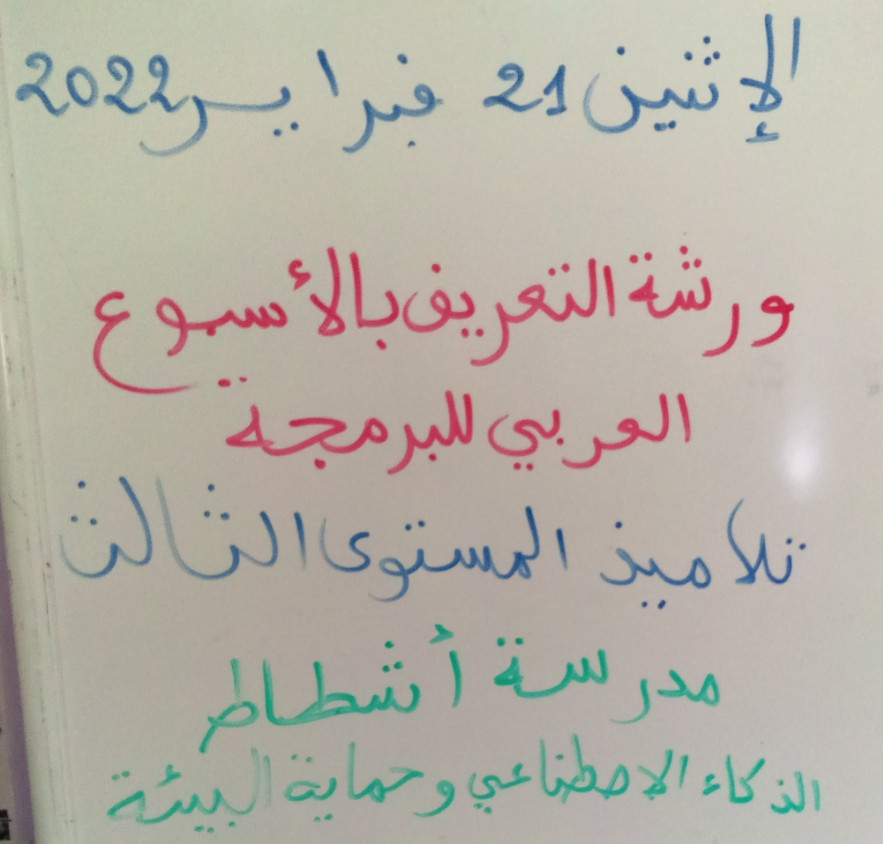 الإثنين 21 فبراير 2022
ورشة التعريف بالأسبوع
العربي للبرمجة
تلاميذ المستوى الثالث
مدرسة أشطاط
الذكاء الاصطناعي وحماية البيئة